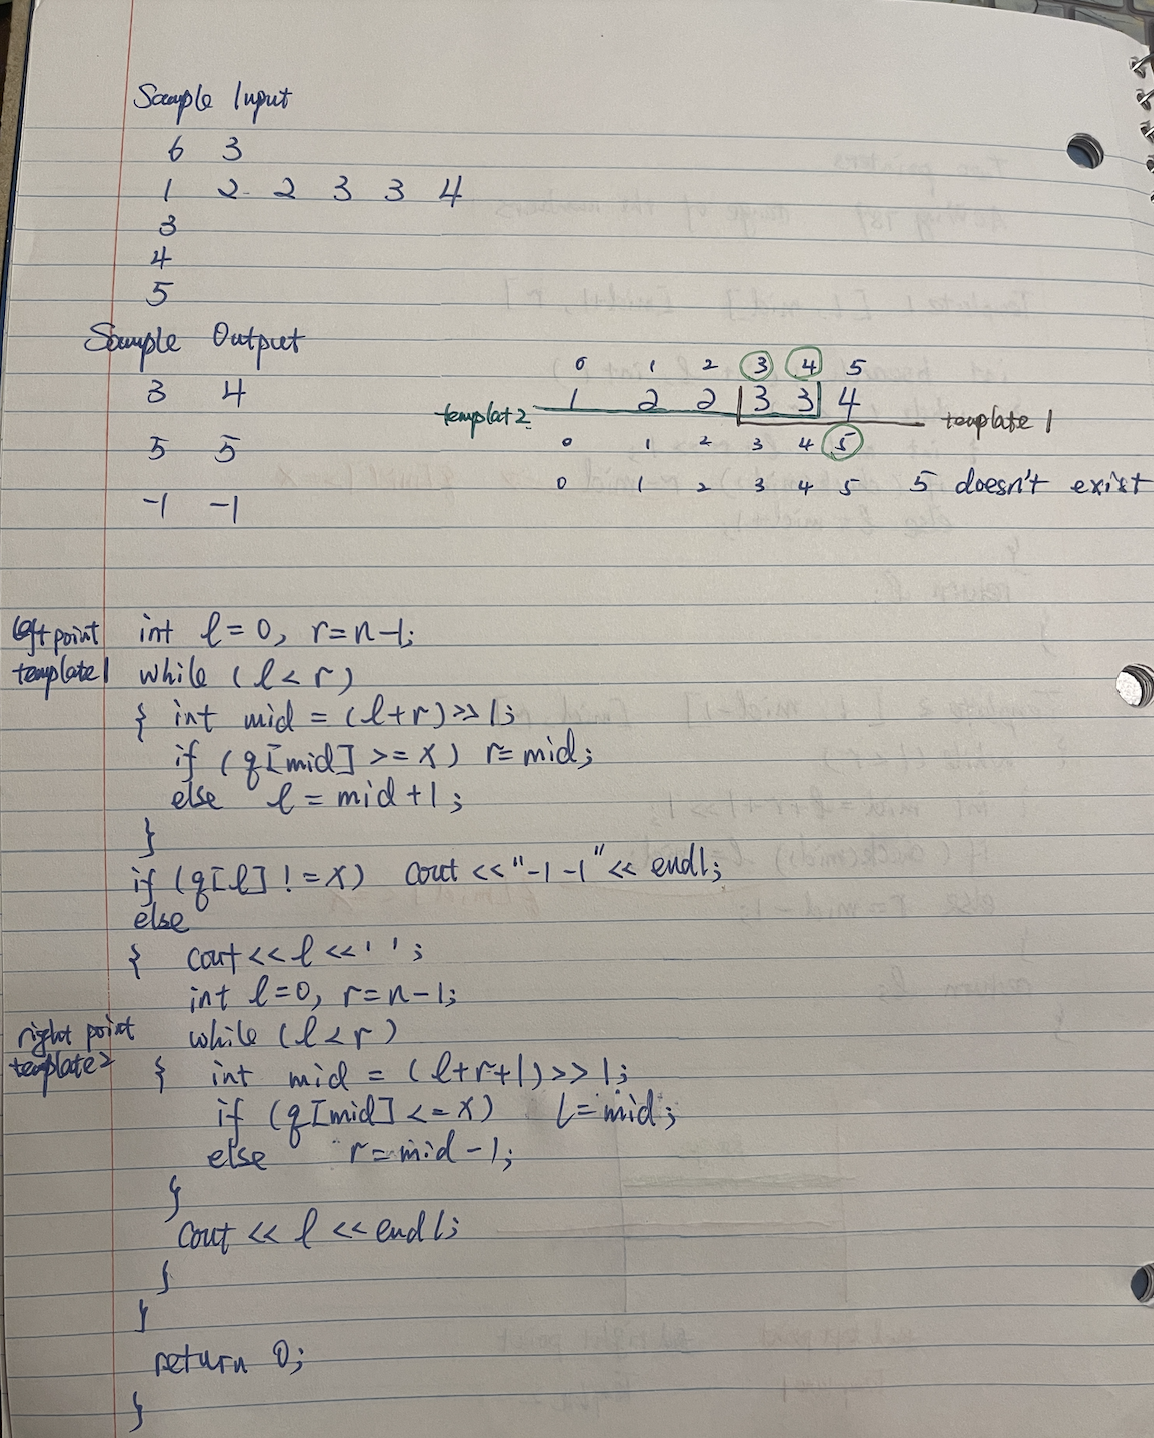 Sample Input
6 3
1 2 2 3 3 4
3
4
5
Sample Output
3 4
5 5
-1 -1
0 1 2 3 4 5
1 2 2 3 3 4
templat2
template 1
0 1 2 3 4 5
0 1 2 3 4 5 5 doesn't exist
left point int l=0, r=n-1;
template1 while (l<r)
{ int mid = (l+r)>>1;
if (q[mid] >= x) r=mid;
else l = mid+1;
}
if (q[l] != x) cout <<"-1 -1"<< endl;
else
{ cout << l <<' ';
int l=0, r=n-1;
right point while (l<r)
template2 { int mid = (l+r+1)>>1;
if (q[mid] <= x) l=mid;
else r=mid-1;
}
cout << l << endl;
}
}
return 0;
}